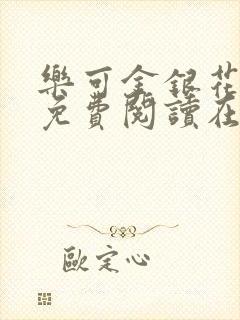 樂可金銀花
免費閱讀在
歐定心